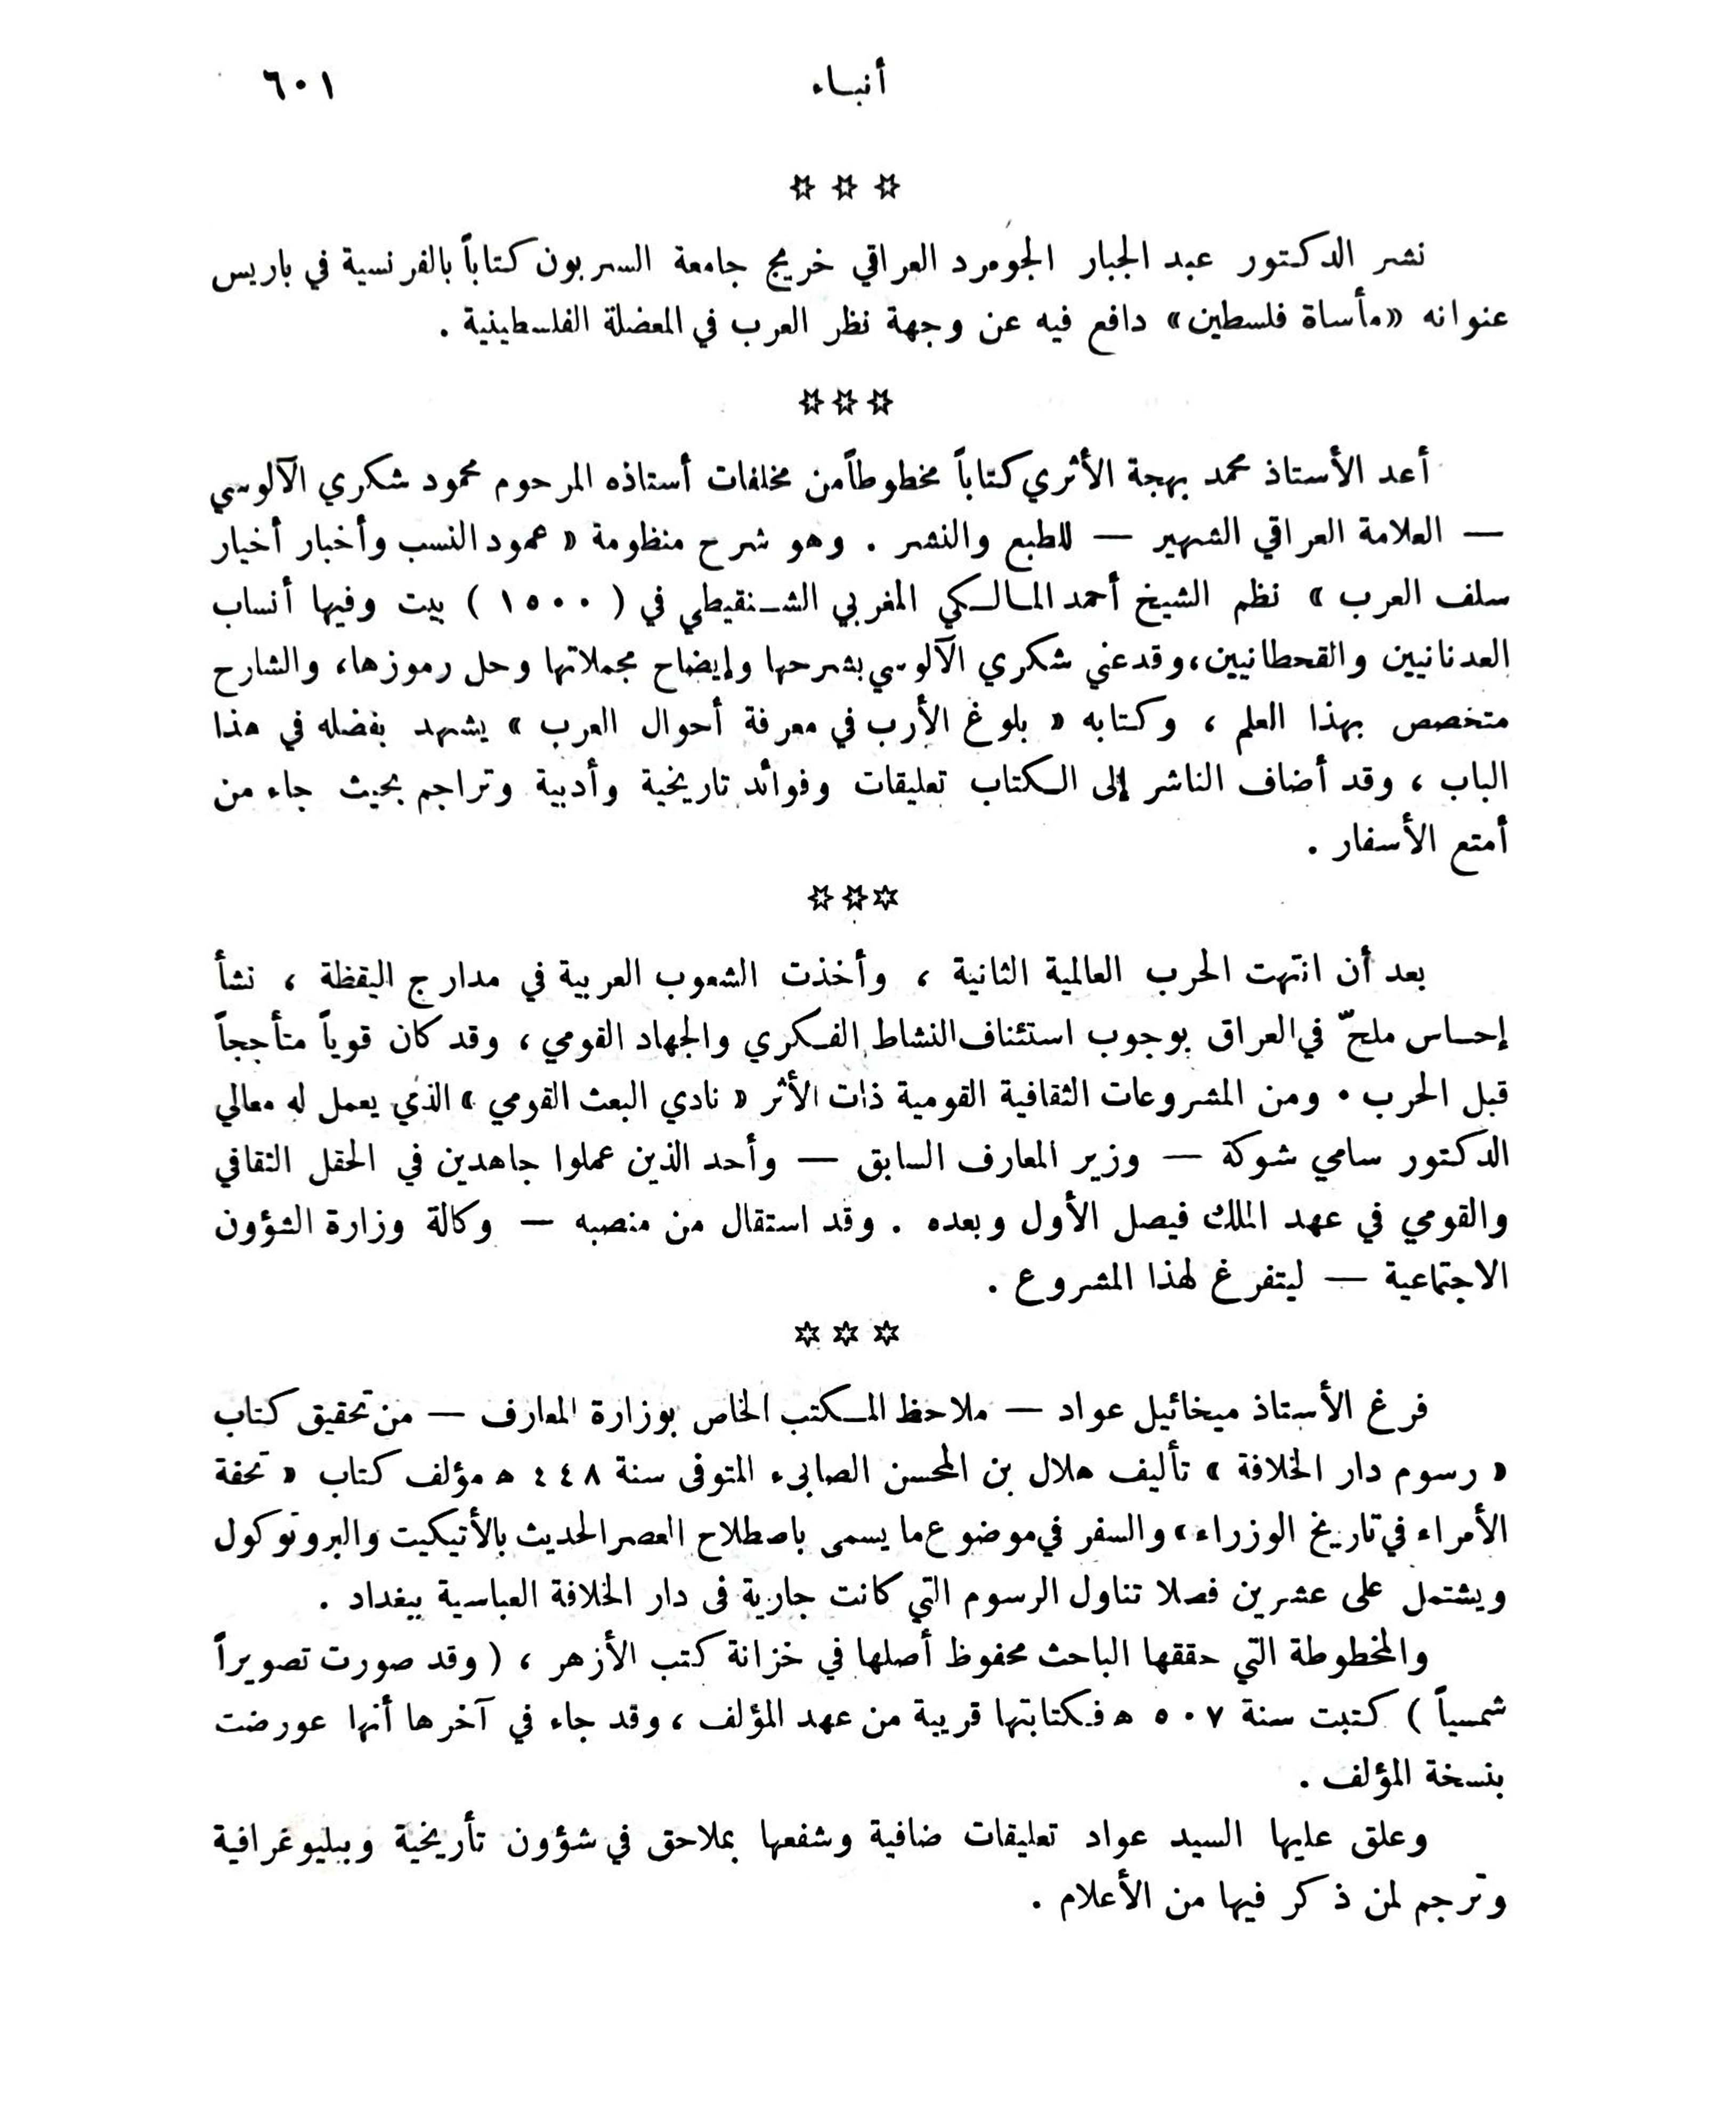 أنباء ٦٠١
✡ ✡ ✡
نشر الدكتور عبد الجبار الجومرد العراقي خريج جامعة السربون كتاباً بالفرنسية في باريس
عنوانه «مأساة فلسطين» دافع فيه عن وجهة نظر العرب في المعضلة الفلسطينية .
✡✡✡
أعد الأستاذ محمد بهجة الأثري كتاباً مخطوطاً من مخلفات أستاذه المرحوم محمود شكري الآلوسي
— العلامة العراقي الشهير — للطبع والنشر . وهو شرح منظومة « عمود النسب وأخبار أخيار
سلف العرب » نظم الشيخ أحمد المالكي المغربي الشنقيطي في ( ١٥٠٠ ) بيت وفيها أنساب
العدنانيين والقحطانيين، وقد عني شكري الآلوسي بشرحها وإيضاح مجملاتها وحل رموزها، والشارح
متخصص بهذا العلم ، وكتابه « بلوغ الأرب في معرفة أحوال العرب » يشهد بفضله في هذا
الباب ، وقد أضاف الناشر إلى الكتاب تعليقات وفوائد تاريخية وأدبية وتراجم بحيث جاء من
أمتع الأسفار .
✡✡✡
بعد أن انتهت الحرب العالمية الثانية ، وأخذت الشعوب العربية في مدارج اليقظة ، نشأ
إحساس ملحّ في العراق بوجوب استئناف النشاط الفكري والجهاد القومي ، وقد كان قوياً متأججاً
قبل الحرب . ومن المشروعات الثقافية القومية ذات الأثر « نادي البعث القومي » الذي يعمل له معالي
الدكتور سامي شوكة — وزير المعارف السابق — وأحد الذين عملوا جاهدين في الحقل الثقافي
والقومي في عهد الملك فيصل الأول وبعده . وقد استقال من منصبه — وكالة وزارة الشؤون
الاجتماعية — ليتفرغ لهذا المشروع .
✡ ✡ ✡
فرغ الأستاذ ميخائيل عواد — ملاحظ المكتب الخاص بوزارة المعارف — من تحقيق كتاب
« رسوم دار الخلافة » تأليف هلال بن المحسن الصابىء المتوفى سنة ٤٤٨ ه مؤلف كتاب « تحفة
الأمراء في تاريخ الوزراء » والسفر في موضوع ما يسمى باصطلاح العصر الحديث بالأتيكيت والبروتوكول
ويشتمل على عشرين فصلا تناول الرسوم التي كانت جارية فى دار الخلافة العباسية ببغداد .
والمخطوطة التي حققها الباحث محفوظ أصلها في خزانة كتب الأزهر ، ( وقد صورت تصويراً
شمسياً ) كتبت سنة ٥٠٧ ه فكتابتها قريبة من عهد المؤلف ، وقد جاء في آخرها أنها عورضت
بنسخة المؤلف .
وعلق عليها السيد عواد تعليقات ضافية وشفعها بملاحق في شؤون تأريخية وببليوغرافية
وترجم لمن ذكر فيها من الأعلام .